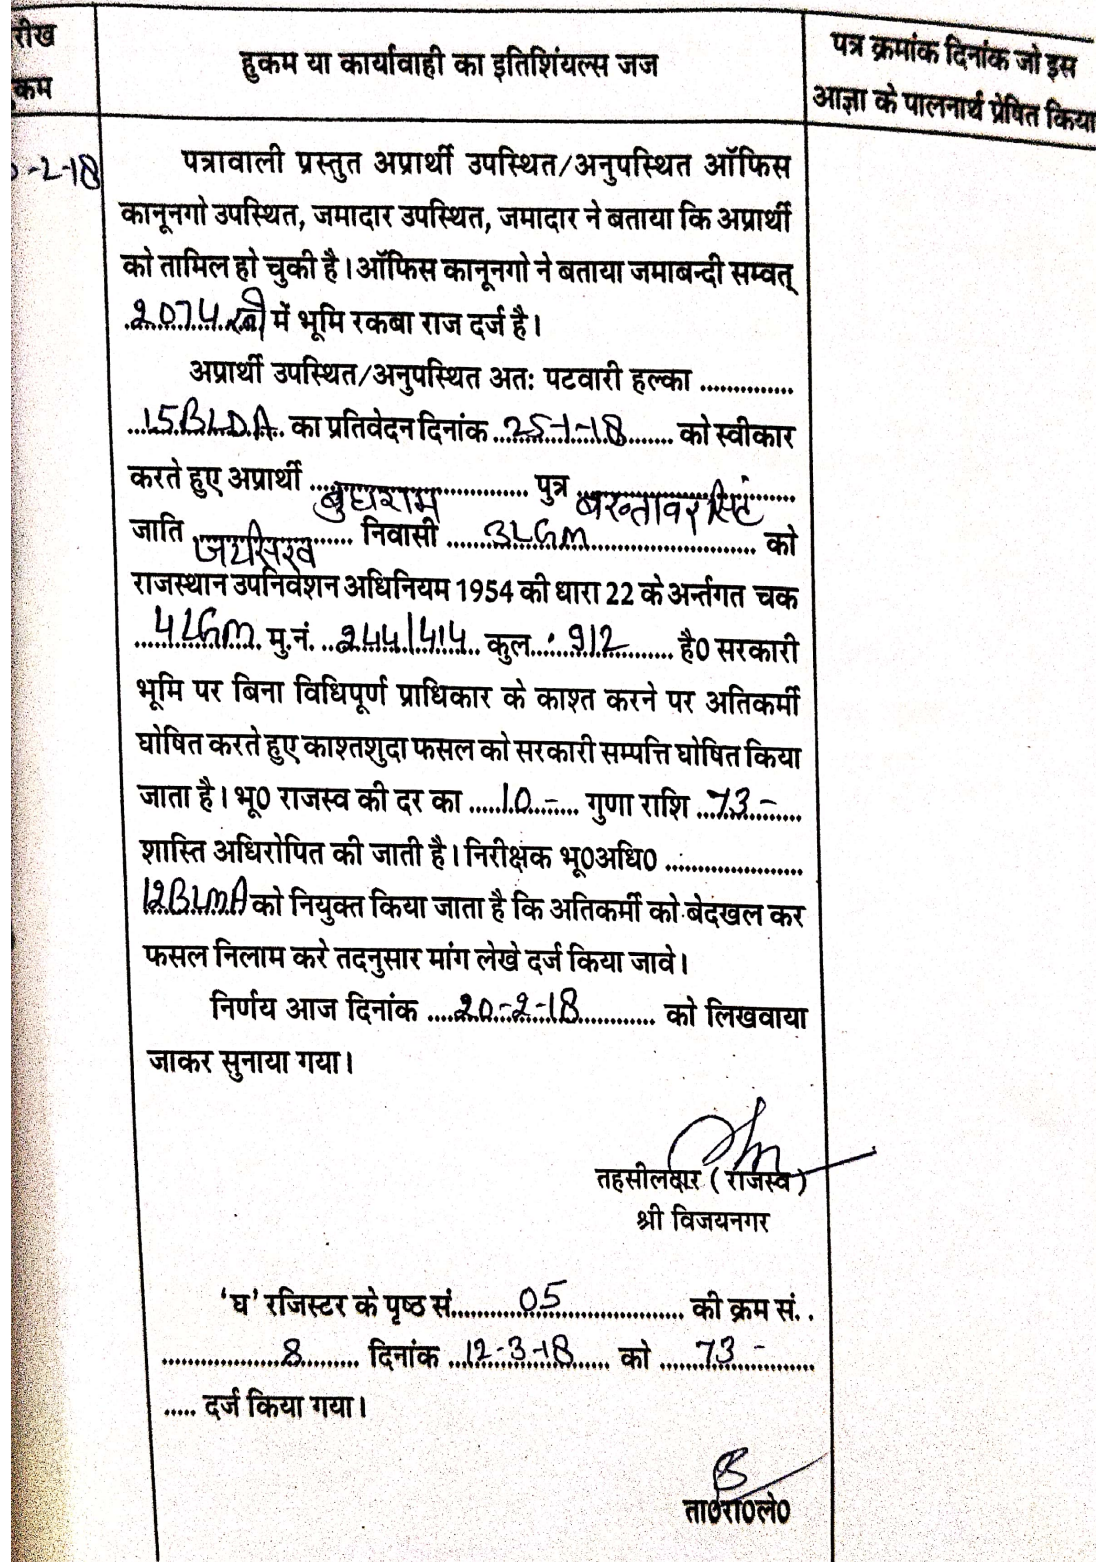 रीख
कम
हुकम या कार्यावाही का इतिशिंयल्स जज
पत्र क्रमांक दिनांक जो इस
आज्ञा के पालनार्थ प्रेषित किया
-2-18
पत्रावाली प्रस्तुत अप्रार्थी उपस्थित/अनुपस्थित ऑफिस
कानूनगो उपस्थित, जमादार उपस्थित, जमादार ने बताया कि अप्रार्थी
को तामिल हो चुकी है। ऑफिस कानूनगो ने बताया जमाबन्दी सम्वत्
2074 में भूमि रकबा राज दर्ज है।
अप्रार्थी उपस्थित/अनुपस्थित अतः पटवारी हल्का ..............
15BLDA का प्रतिवेदन दिनांक 25-1-18 को स्वीकार
करते हुए अप्रार्थी बुधराम पुत्र बख्तावर सिंह
जाति जटसिख निवासी 3LGM को
राजस्थान उपनिवेशन अधिनियम 1954 की धारा 22 के अर्न्तगत चक
4LGM मु.नं. 244/414 कुल .912 है0 सरकारी
भूमि पर बिना विधिपूर्ण प्राधिकार के काश्त करने पर अतिकर्मी
घोषित करते हुए काश्तशुदा फसल को सरकारी सम्पत्ति घोषित किया
जाता है। भू0 राजस्व की दर का 10- गुणा राशि 73-
शास्ति अधिरोपित की जाती है। निरीक्षक भू0अधि0 ....................
12BLMA को नियुक्त किया जाता है कि अतिकर्मी को बेदखल कर
फसल निलाम करे तदनुसार मांग लेखे दर्ज किया जावे।
निर्णय आज दिनांक 20-2-18 को लिखवाया
जाकर सुनाया गया।
तहसीलदार (राजस्व)
श्री विजयनगर
'घ' रजिस्टर के पृष्ठ सं. 05 की क्रम सं. .
8 दिनांक 12-3-18 को 73-
..... दर्ज किया गया।
ता0रा0ले0